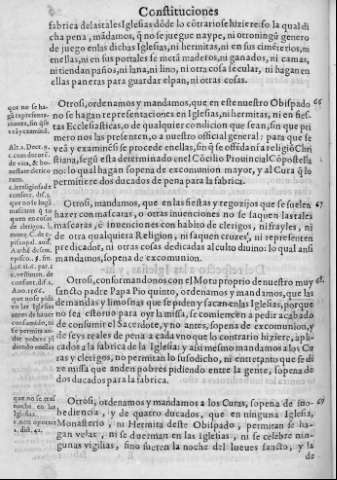 Constituciones
fabrica de las tales Iglesias dõde lo cõtrario se hiziere: so la qual di
cha pena, mãdamos, q̃ no se juegue naype, ni otro ningũ genero
de juego en las dichas Iglesias, ni hermitas, ni en sus cimẽterios, ni
en ellas, ni en sus portales se metã maderos, ni ganados, ni camas,
ni tiendan paños, ni lana, ni lino, ni otra cosa secular, ni hagan en
ellas paneras para guardar el pan, ni otras cosas.
que no se ha-
gã representa-
ciones, sin q̃ se
vea y examinẽ.
Otrosi, ordenamos y mandamos, que en este nuestro Obispado 66
no se hagan representaciones en Iglesias, ni hermitas, ni en fies-
tas Ecclesiasticas, o de qualquier condicion que sean, sin que pri
mero nos las presenten, o a nuestro official general: para que se
vea y examinẽ si se procede en ellas, sin q̃ se offẽda nr̃a religiõ Chri
stiana, segũ esta determinado en el Cõcilio Prouincial Cõpostella
no: lo qual hagan sopena de excomunion mayor, y al Cura q̃ lo
permitiere dos ducados de pena para la fabrica.
que no se hagã
mascaras q̃ to
quen en cosas
de clerigos.
Otrosi, mandamos, que en las fiestas y regozijos que se suelen 67
hazer con mascaras, o otras inuenciones no se saquen las tales
mascaras, e inuenciones con habito de clerigos, ni frayles, ni
de otra qualquiera Religion, ni saquen cruzes, ni representen
predicador, ni otras cosas dedicadas al culto diuino: lo qual ansi
mandamos, sopena de excomunion.
Anno. 1566.
que no se pida
en las Iglesias
antes de hauer
consumido, ni
se permita an-
dar pobres pi
diendo en ellas
Otrosi, conformandonos con el Motu proprio de nuestro muy 68
sancto padre Papa Pio quinto, ordenamos y mandamos, que las
demandas y limosnas que se piden y sacan en las Iglesias, porque
no sea estoruo para oyr la missa, se comiencen a pedir acabado
de consumir el Sacerdote, y no antes, sopena de excomunion, y
de seys reales de pena a cada vno que lo contrario hiziere, apli-
cados a la fabrica de la Iglesia: y assi mesmo mandamos a los Cu
ras y clerigos, no permitan lo susodicho, ni entretanto que se di
ze missa que anden pobres pidiendo entre la gente, sopena de
dos ducados para la fabrica.
que no se vele
noche en las
Iglesias.
Otrosi, ordenamos y mandamos a los Curas, sopena de ino- 69
bediencia, y de quatro ducados, que en ninguna Iglesia,
Monasterio, ni Hermita deste Obispado, permitan se ha-
gan velas, ni se duerman en las Iglesias, ni se celebre nin-
gunas vigilias, sino fueren la noche del Iueues sancto, y la
de